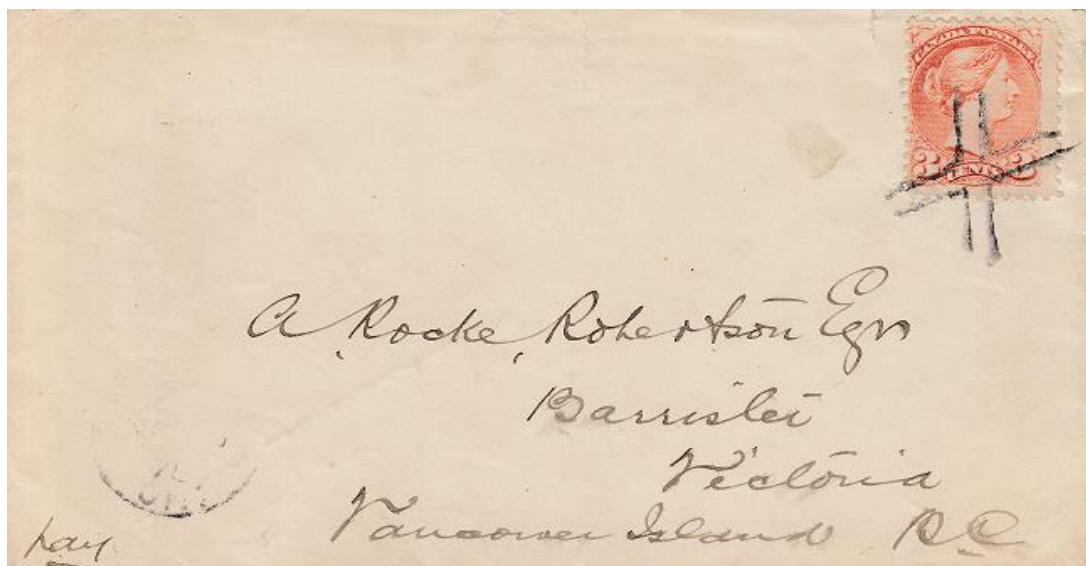 CANADA POSTAGE
3 CENTS 3
A. Rocke, Robertson Esqr
Barrister
Victoria
Vancouver Island B.C